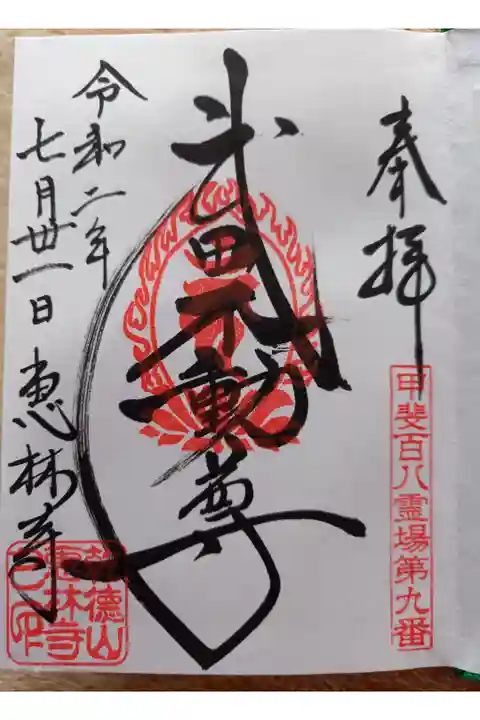 奉拝
甲斐百八霊場第九番
武田不動尊
令和二年
七月卅一日 恵林寺
乾徳山
恵林寺
之印